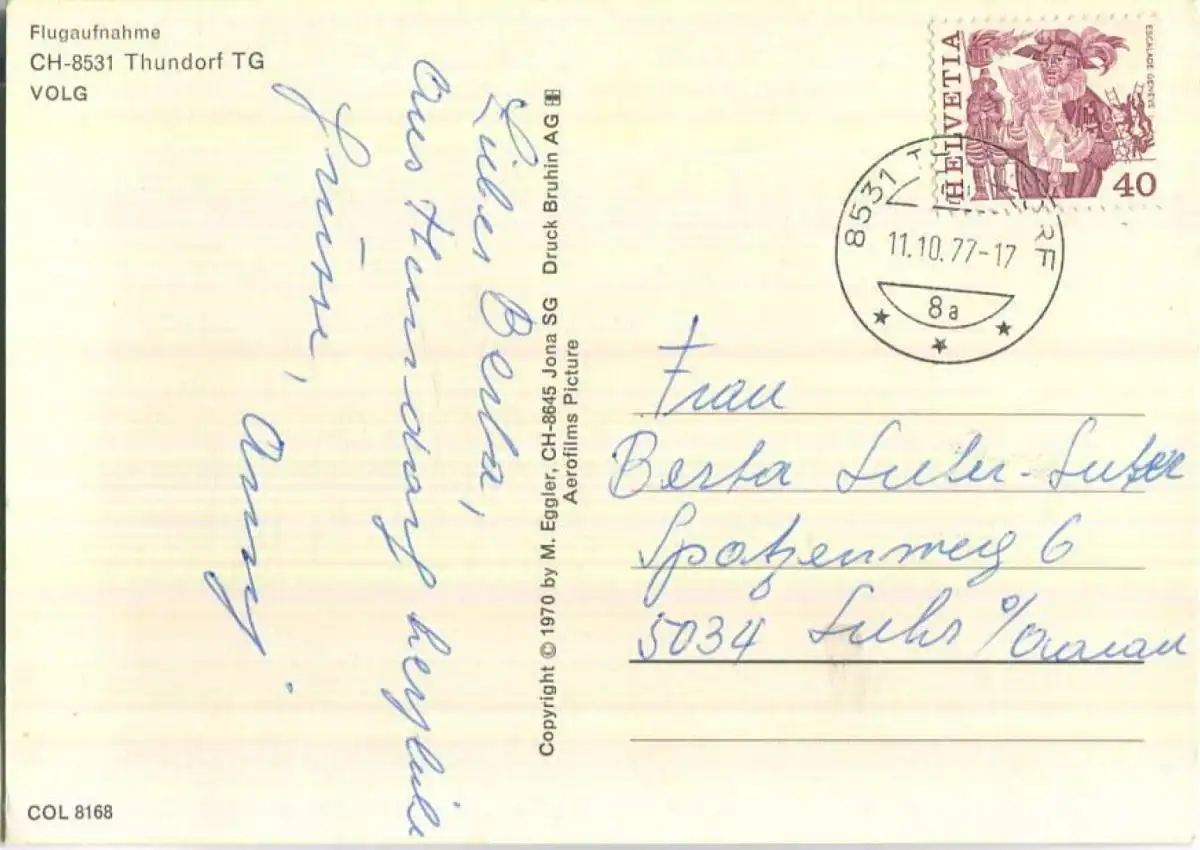 Flugaufnahme
CH-8531 Thundorf TG
VOLG
Liebes Berta,
Aus Thundorf herzliche
Grüsse,
Anny
COL 8168
Copyright © 1970 by M. Eggler, CH-8645 Jona SG Druck Bruhin AG
Aerofilms Picture
HELVETIA
ESCALADE GENÈVE
40
8531
11.10.77-17
8a
Frau
Berta Suter-Suter
Spatzenweg 6
5034 Suhr /Aarau